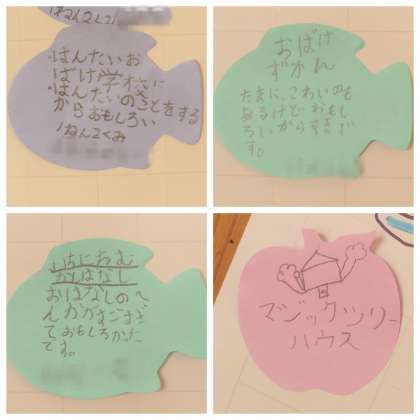 ねん2くみ
・はんたいお
ばけ学校に
・はんたいのことをする
からおもしろい
1ねん2くみ
おばけ
ずかん
たまに、こわいのも
あるけど、おもし
ろいからすきで
す。
おはなしのへ
んかがすごすぎ
ておもしろかた
です。
マジックツリー
ハウス